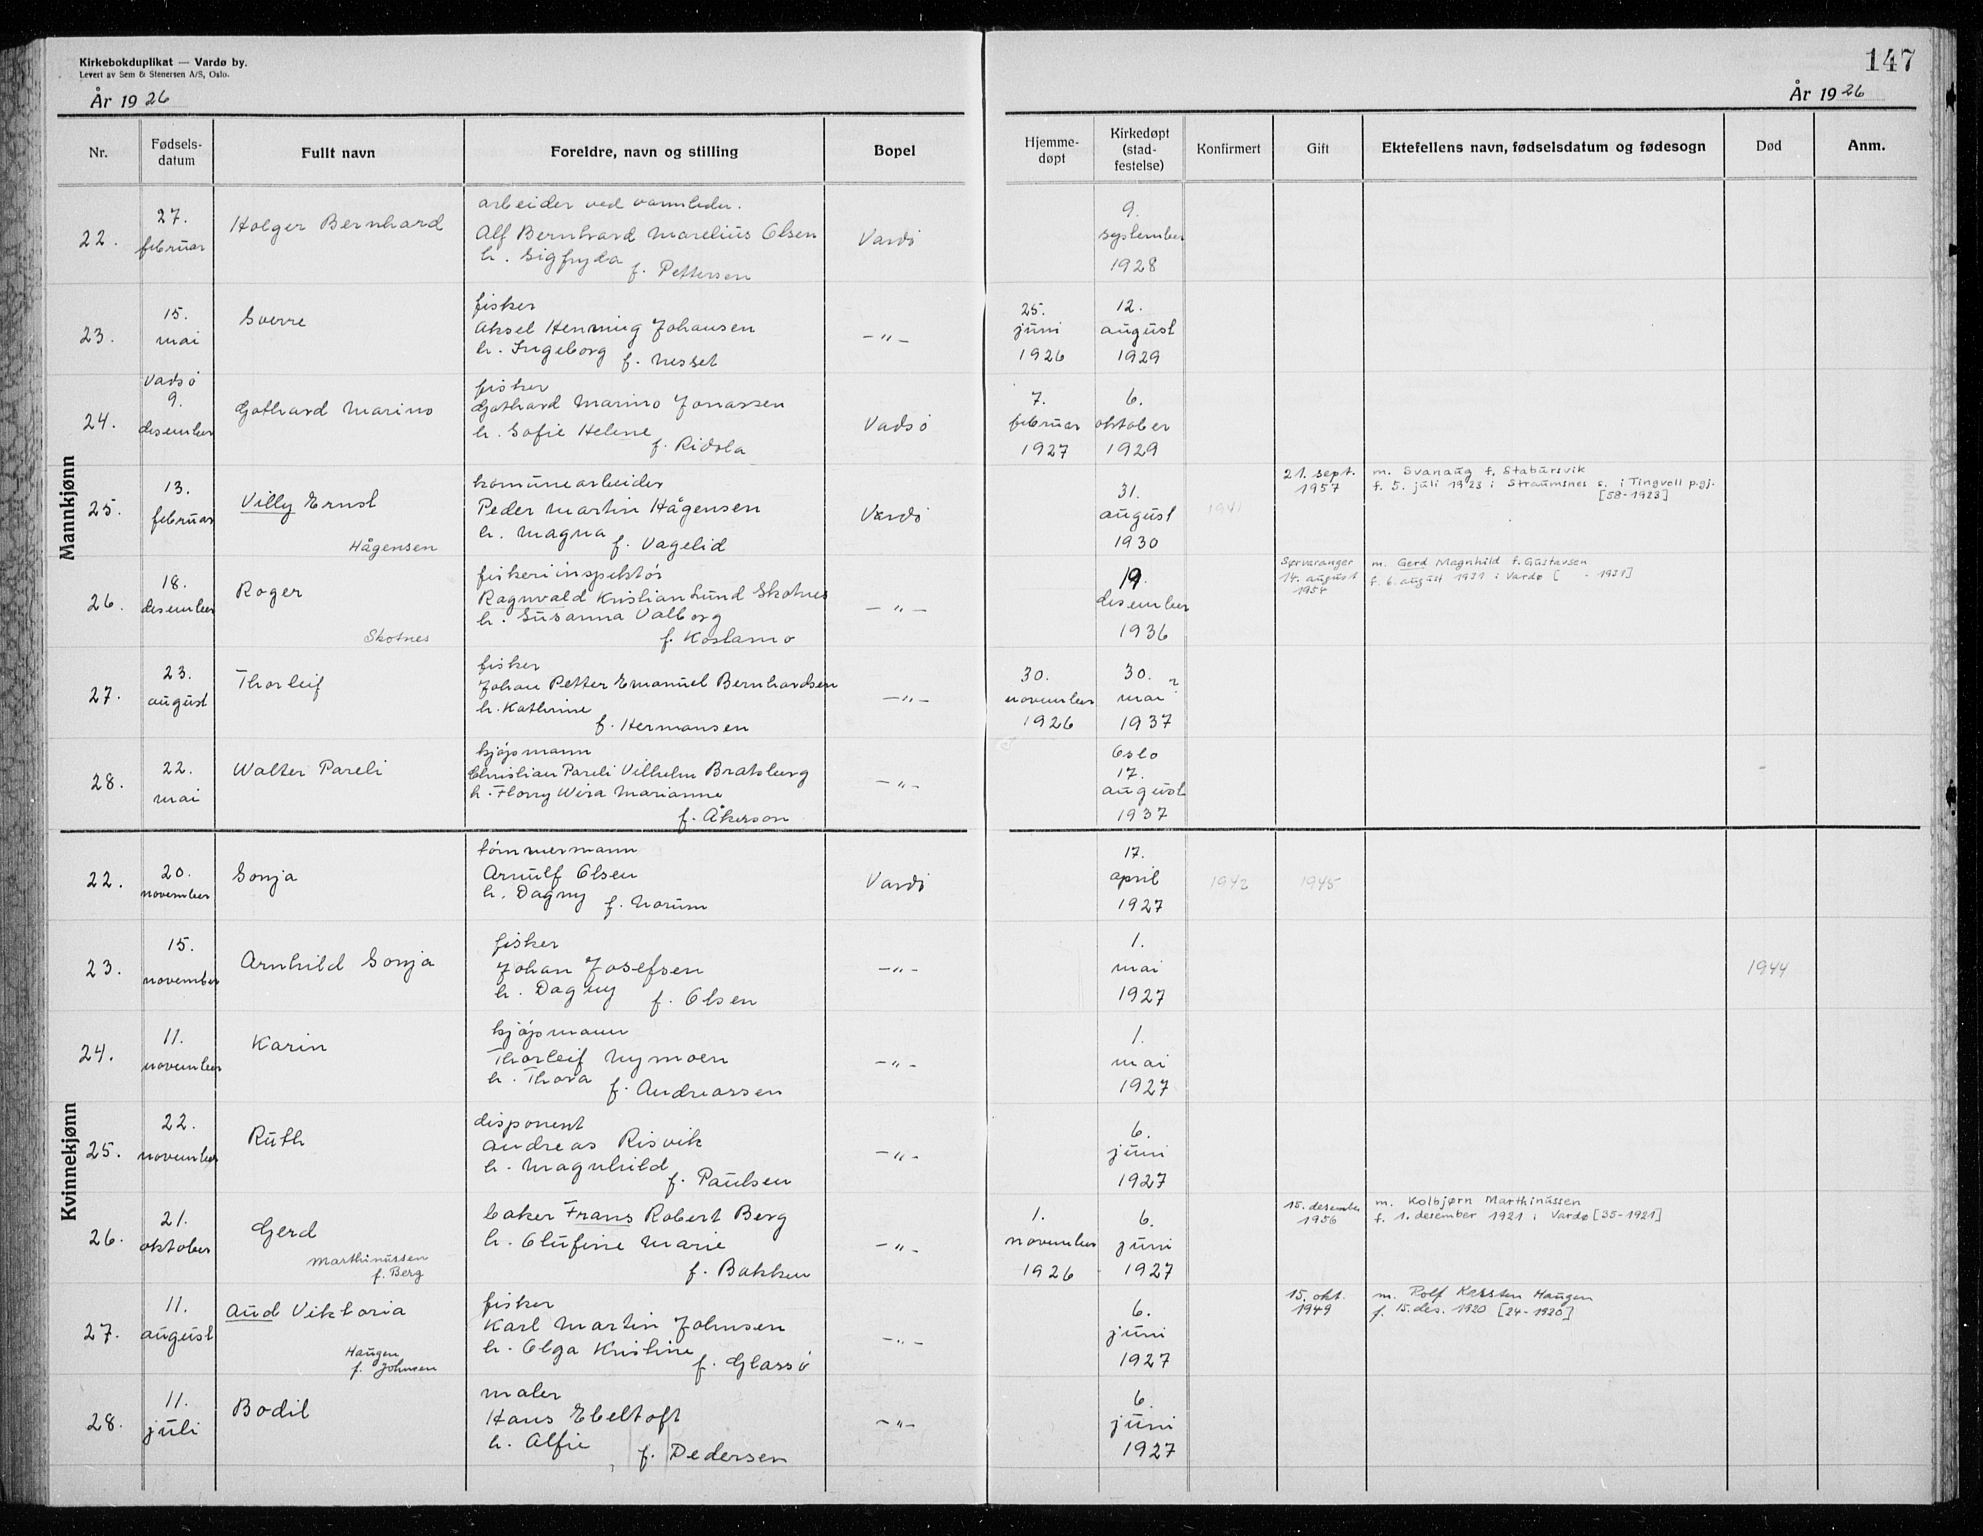 Kirkebokduplikat — Vardø by.
Levert av Sem & Stenersen A/S, Oslo.
147
År 1926
År 1926
Nr.
Fødsels-
datum
Fullt navn
Foreldre, navn og stilling
Bopel
Hjemme-
døpt
Kirkedøpt
(stad-
festelse)
Konfirmert
Gift
Ektefellens navn, fødselsdatum og fødesogn
Død
Anm.
Mannkjønn
22.
27.
februar
Holger Bernhard
arbeider ved
Alf Bernhard Marelius Olsen
h. Sigfryda
f. Pettersen
Vardø
9.
september
1928
23.
15.
mai
Sverre
fisker
Aksel Henning Johansen
h. Ingeborg f. Nesset
—"—
25.
juni
1926
12.
august
1929
24.
Vadsø
9.
desember
Gothard Marino
fisker
Gothard Marino Jonassen
h. Sofie Helene
f. Ridola
Vadsø
7.
februar
1927
6.
oktober
1929
25.
13.
februar
Villy Ernst
Hågensen
komunearbeider
Peder Martin Hågensen
h. Magna f. Vagelid
Vardø
31.
august
1930
1941
21. sept.
1957
m. Svanaug f. Stabursvik
f. 5. juli 1923 i Straumsnes s. i Tingvoll p.gj.
[58-1923]
26.
18.
desember
Roger
Skotnes
fiskeriinspektør
Ragnvald Kristian Lund Skotnes
h. Susanna Valborg
f. Kostamo
—"—
19.
desember
1936
Sørvaranger
14. august
1954
m. Gerd Magnhild f. Gustavsen
f. 6. august 1931 i Vardø [ - 1931]
27.
23.
august
Thorleif
fisker
Johan Petter Emanuel Bernhardsen
h. Kathrine
f. Hermansen
—"—
30.
november
1926
30.
mai ?
1937
28.
22.
mai
Walter Pareli
kjøpmann
Christian Pareli Vilhelm Bratsberg
h. Florry Wira Marianne
f. Åkerson
—"—
Oslo
17.
august
1937
Kvinnekjønn
22.
20.
november
Sonja
tømmermann
Arnulf Olsen
h. Dagny f. Norum
Vardø
17.
april
1927
1942
1945
23.
15.
november
Arnhild Sonja
fisker
Johan Josefsen
h. Dagny f. Olsen
—"—
1.
mai
1927
1944
24.
11.
november
Karin
kjøpmann
Thorleif Nymoen
h. Thora f. Andreassen
—"—
1.
mai
1927
25.
22.
november
Ruth
disponent
Andreas Risvik
h. Magnhild
f. Paulsen
—"—
6.
juni
1927
26.
21.
oktober
Gerd
Marthinussen
f. Berg
baker Frans Robert Berg
h. Olufine Marie
f. Bakken
—"—
1.
november
1926
6.
juni
1927
15. desember
1956
m. Kolbjørn Marthinussen
f. 1. desember 1921 i Vardø [35-1921]
27.
11.
august
Aud Viktoria
Haugen
f. Johnsen
fisker
Karl Martin Johnsen
h. Olga Kristine
f. Glassø
—"—
6.
juni
1927
15. okt.
1949
m. Rolf Karsten Haugen
f. 15. des. 1920 [24-1920]
28.
11.
juli
Bodil
maler
Hans Ebeltoft
h. Alfie
f. Pedersen
—"—
6.
juni
1927